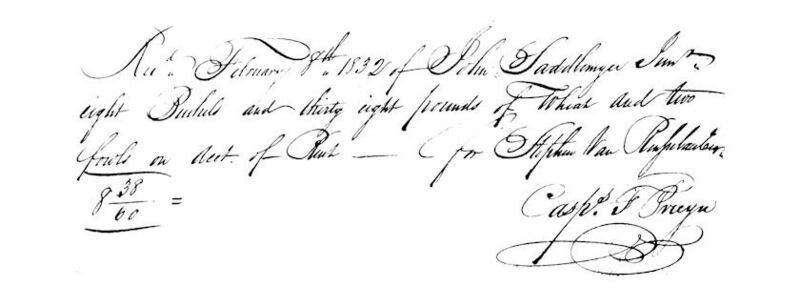 Recd. February 8th. 1832 of John Saddlemyer Junr.
eight Bushels and thirty eight pounds of Wheat and two
fowls on acct. of Rent — for Stephen Van Rensselaer
8 38/60 = Caspr. F Pruyn